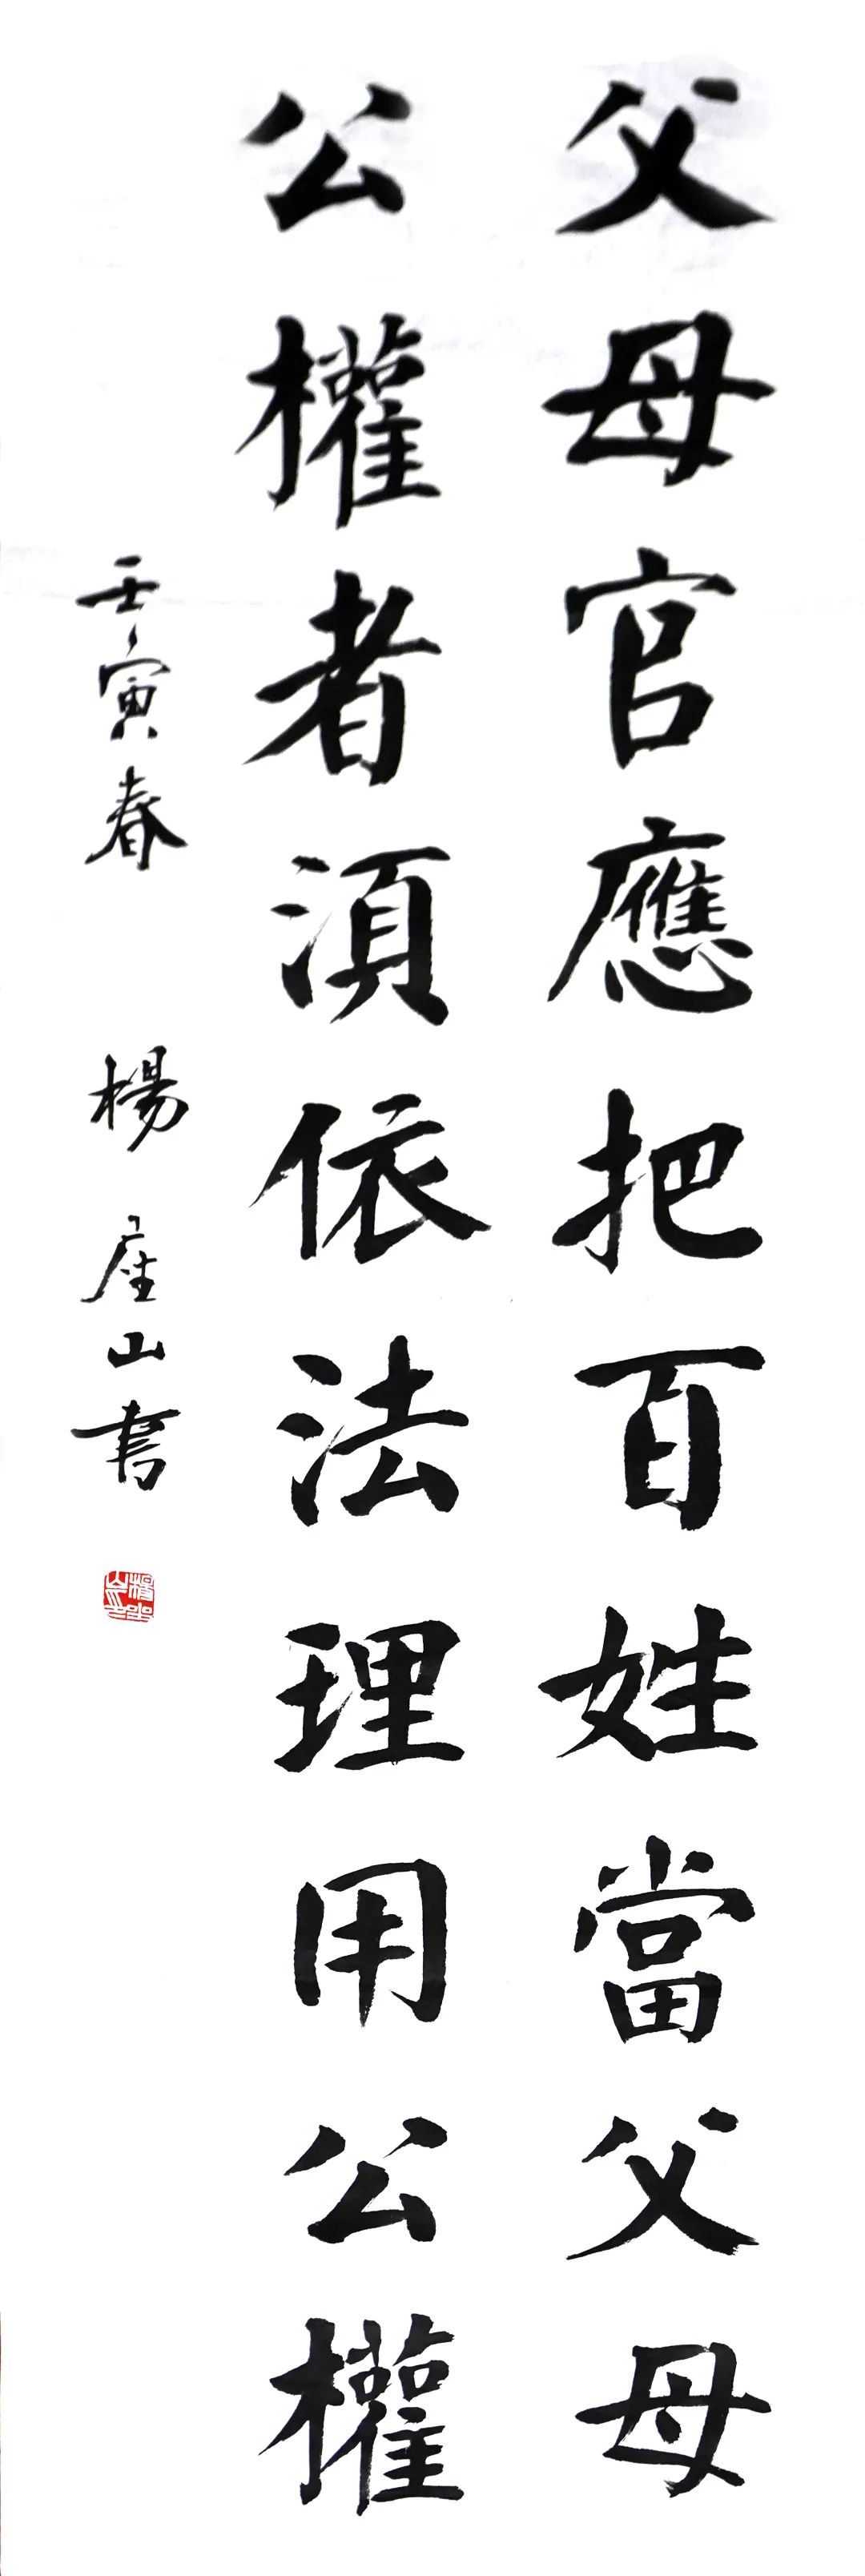 父母官應把百姓當父母
公權者湏依法理用公權
壬寅春 楊座山書